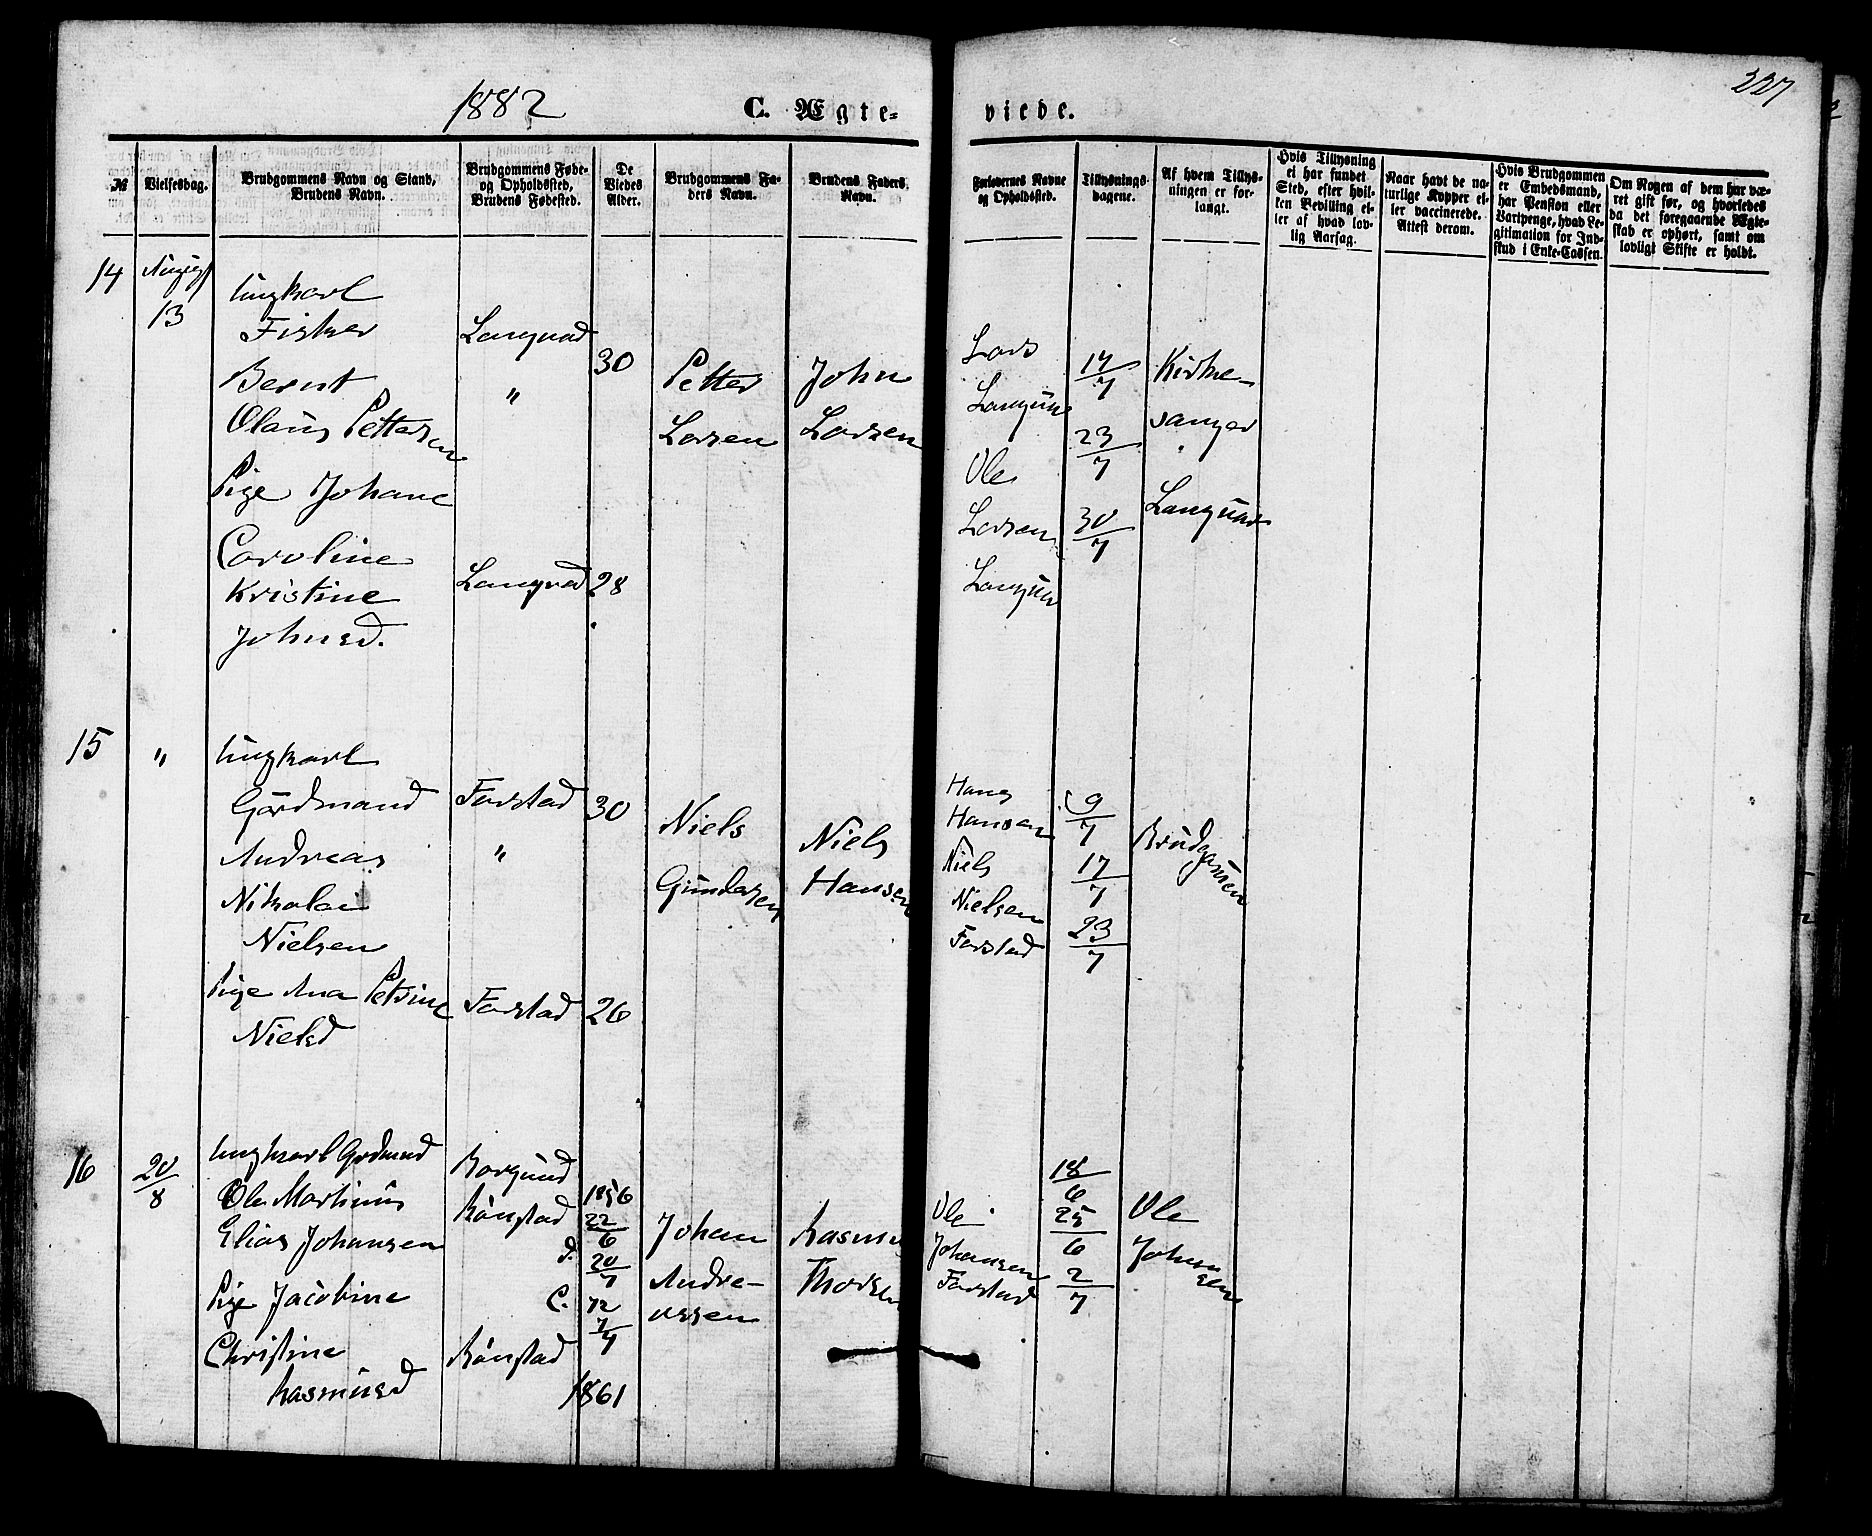 1882
C. Ægte-
viede.
227
№
Vielsesdag.
Brudgommens Navn og Stand,
Brudens Navn.
Brudgommens Føde-
og Opholdssted,
Brudens Fødested.
De
Viedes
Alder.
Brudgommens Fa-
ders Navn.
Brudens Faders
Navn.
Forlovernes Navne
og Opholdssted.
Tillysnings-
dagene.
Af hvem Tillys-
ningen er for-
langt.
Hvis Tillysning
ei har fundet
Sted, efter hvil-
ken Bevilling el-
ler af hvad lov-
lig Aarsag.
Naar havt de na-
turlige Kopper el-
ler vaccinerede.
Attest derom.
Hvis Brudgommen
er Embedsmand,
har Pension eller
Vartpenge, hvad Le-
gitimation for Ind-
skud i Enke-Cassen.
Om Nogen af dem har væ-
ret gift før, og hvorledes
da det foregaaende Ægte-
skab er ophørt, samt om
lovligt Skifte er holdt.
14
August
13
Ungkarl
Fisker
Bernt
Olaus Pettersen
Pige Johane
Caroline
Kristine
Johnsd.
Langvad
"
Langvad
30
28
Petter
Larsen
John
Larsen
Lars
Langva
Ole
Larsen
Langva
17/7
23/7
30/7
Kirke-
sanger
Langvad
15
"
Ungkarl
Gårdmand
Andreas
Nikolai
Nielsen
Pige Ana Petrine
Nielsd
Farstad
"
Farstad
30
26
Niels
Gundersen
Niels
Hansen
Hans
Hansen
Niels
Nielsen
Farstad
9/7
17/7
23/7
Brudgomen
16
20/8
Ungkarl Grdmnd
Ole Martinus
Elias Johansen
Pige Jacobine
Christine
Rasmusd
Borgund
Rønstad
d.
C.
Rønstad
1856
22/6
20/7
12
7/4
1861
Johan
Andre-
assen
Rasmus
Thorsen
Ole
Johansen
Farstad
18/6
25/6
2/7
Ole
Johansen